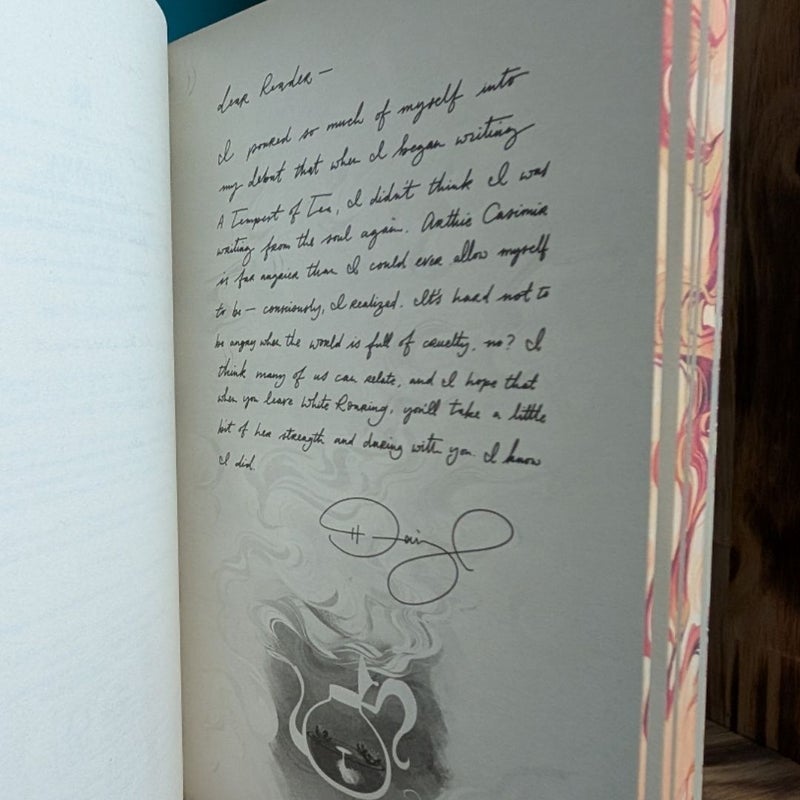 Dear Reader —
I poured so much of myself into
my debut that when I began writing
A Tempest of Tea, I didn't think I was
writing from the soul again. Arthie Casimir
is far angrier than I could ever allow myself
to be — consciously, I realized. It's hard not to
be angry when the world is full of cruelty, no? I
think many of us can relate, and I hope that
when you leave White Roaring, you'll take a little
bit of her strength and daring with you. I know
I did.